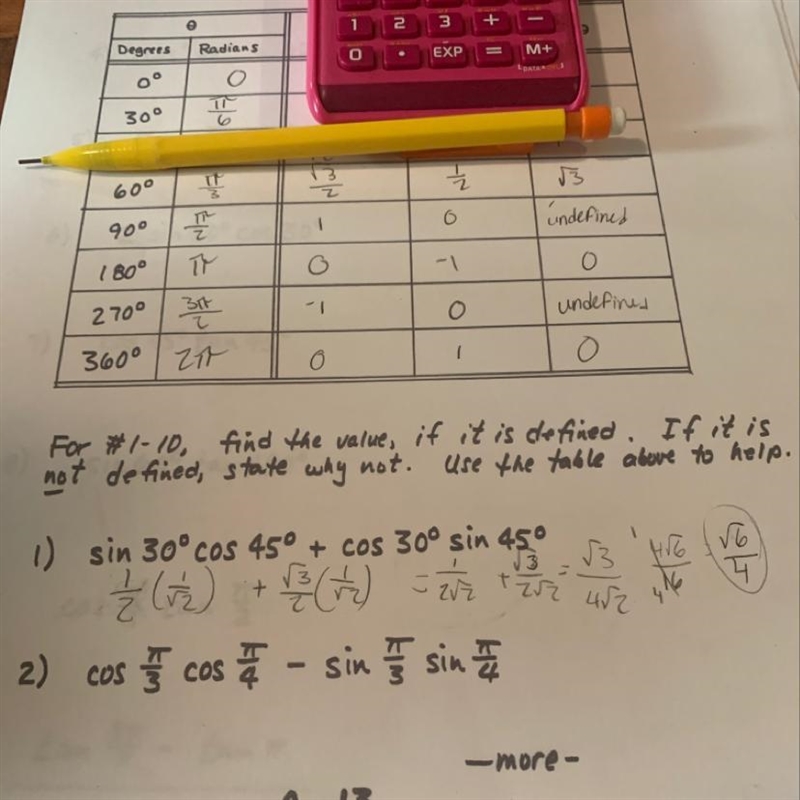 1 2 3 + −
0 • EXP = M+
DATA
θ
Degrees Radians
0° 0
30° π/6
60° π/3 √3/2 1/2 √3
90° π/2 1 0 undefined
180° π 0 -1 0
270° 3π/2 -1 0 undefined
360° 2π 0 1 0
For #1-10, find the value, if it is defined. If it is
not defined, state why not. Use the table above to help.
1) sin 30° cos 45° + cos 30° sin 45°
1/2 (1/√2) + √3/2 (1/√2) = 1/2√2 + √3/2√2 = √3/4√2 4√6/16 √6/4
2) cos π/3 cos π/4 − sin π/3 sin π/4
—more-